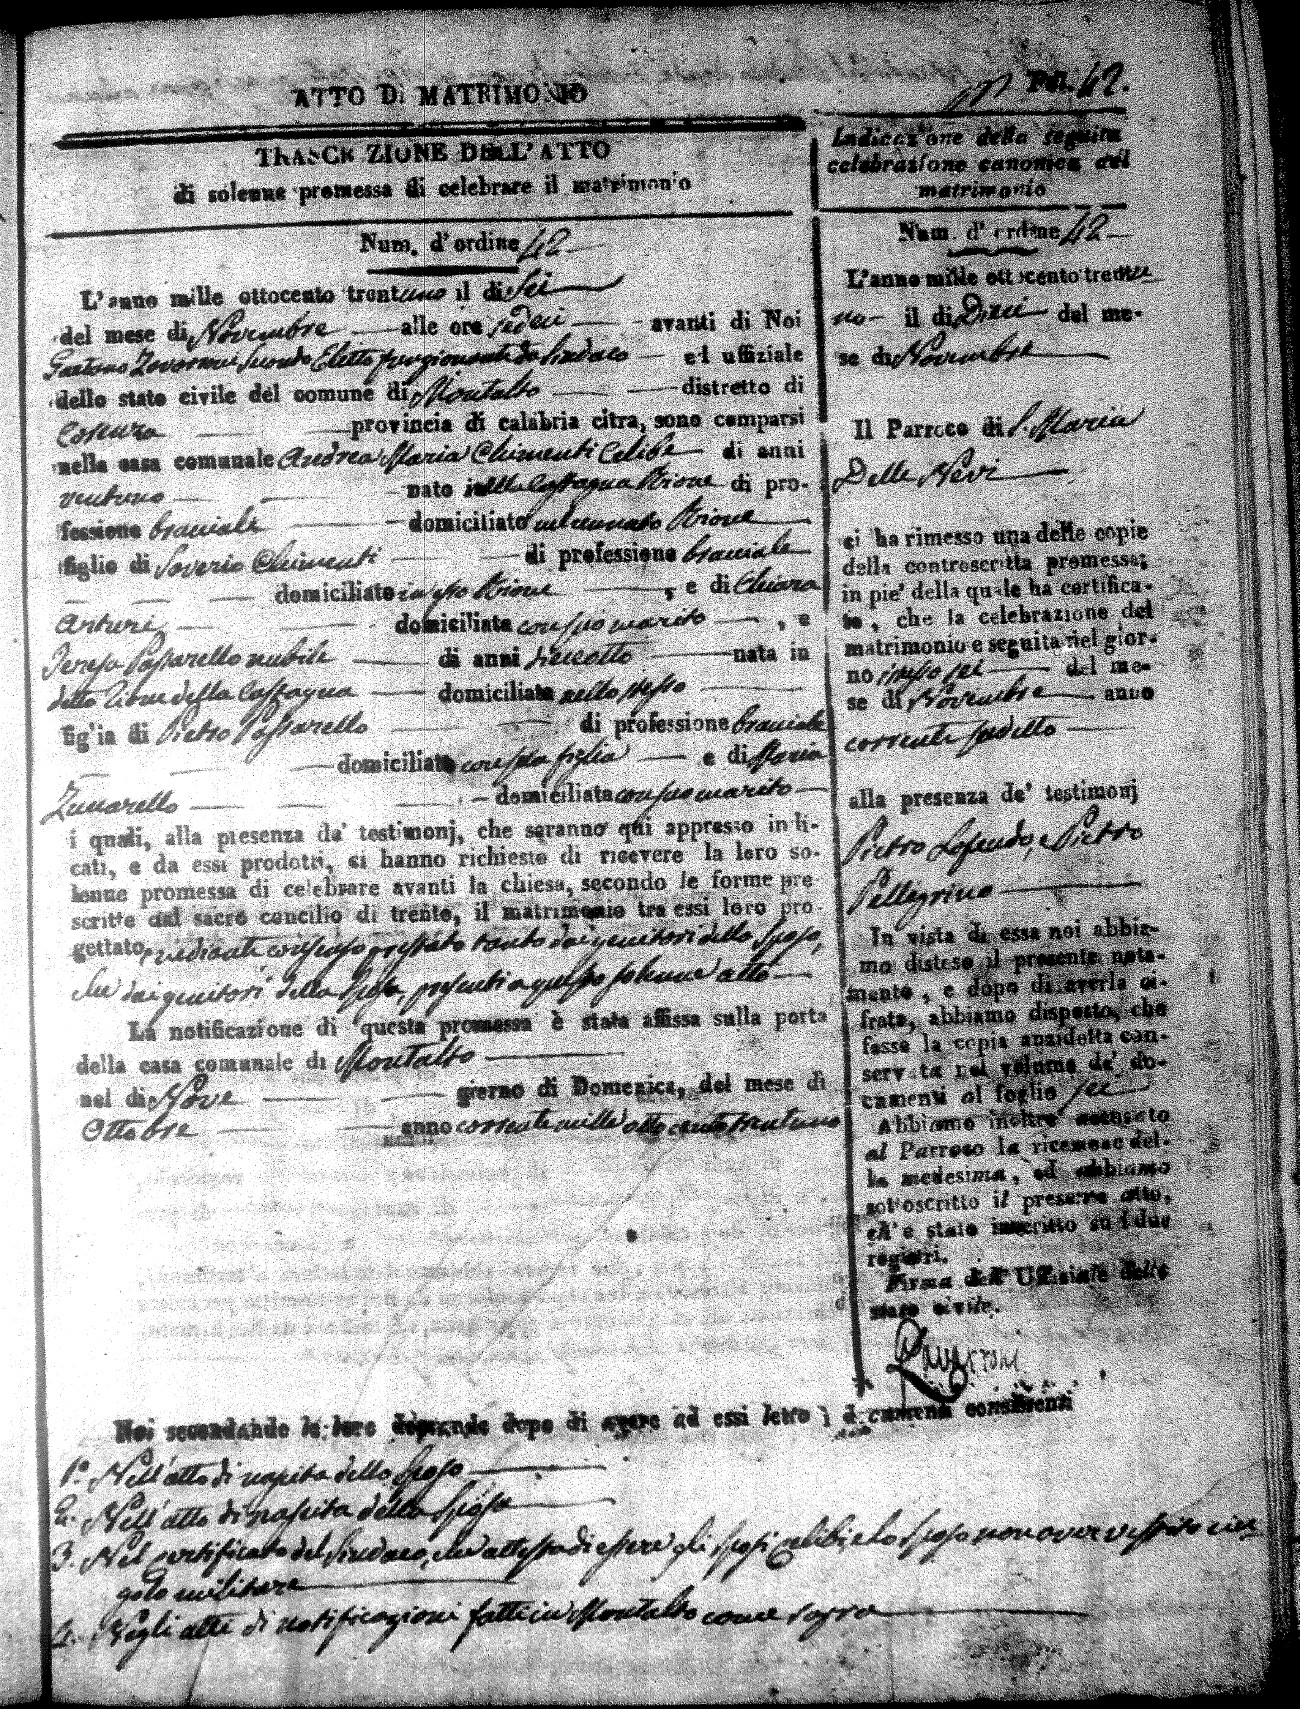 Pol. 42.
ATTO Di MATRIMONIO
TRASCRIZIONE DELL'ATTO
di solenne promessa di celebrare il matrimonio
Num. d'ordine 42
L'anno mille ottocento trentuno il di Sei
del mese di Novembre alle ore sedeci avanti di Noi
Gaetano Zavarroni Secondo Eletto funzionante da Sindaco ed uffiziale
dello stato civile del comune di Montalto distretto di
Cosenza provincia di calabria citra, sono comparsi
nella casa comunale Andrea Maria Chimenti Celibe di anni
ventuno nato nella Castagna Rione di pro-
fessione bracciale domiciliato nel cennato Rione
figlio di Saverio Chimenti di professione bracciale
domiciliato in esso Rione , e di Chiara
Arturi domiciliata con suo marito , e
Teresa Passarello nubile di anni dieciotto nata in
detto Rione della Castagna domiciliata nello stesso
figlia di Pietro Passarello di professione bracciale
domiciliato con essa figlia e di Maria
Zuccarello domiciliata con suo marito
i quali, alla presenza de' testimonj, che saranno qui appresso indi-
cati, e da essi prodotti, ci hanno richiesto di ricevere la loro so-
lenne promessa di celebrare avanti la chiesa, secondo le forme pre
scritte dal sacro concilio di trento, il matrimonio tra essi loro pro-
gettato, mediante consenso prestato tanto dai genitori dello Sposo,
che dai genitori della Sposa, presenti a questo solenne atto
La notificazione di questa promessa è stata affissa sulla porta
della casa comunale di Montalto
nel di Nove giorno di Domenica, del mese di
Ottobre anno corrente mille ottocento trentuno
Indicazione della seguita
celebrazione canonica del
matrimonio
Num. d'ordine 42
L'anno mille ottocento trentu
no il di Dieci del me-
se di Novembre
Il Parroco di S. Maria
Delle Nevi
ci ha rimesso una delle copie
della controscritta promessa;
in pie' della quale ha certifica-
to, che la celebrazione del
matrimonio e seguita nel gior-
no istesso sei del me-
se di Novembre anno
corrente sudetto
alla presenza de' testimonj
Pietro Lofeudo, e Pietro
Pellegrino
In vista di essa noi abbia-
mo disteso il presente nota-
mento, e dopo di averla ci-
frata, abbiamo disposto, che
fosse la copia anzidetta con-
servata nel volume de' do-
camenti al foglio sei
Abbiamo inoltre accusato
al Parroco la ricezione del-
la medesima, ed abbiamo
sottoscritto il presente atto,
ch'e stato inscritto su i due
registri.
Firma dell'Uffiziale dello
stato civile.
Zavarroni
Noi secondando le loro domande dopo di avere ad essi letto i documenti consistenti
1.º Nell'atto di nascita dello Sposo
2. Nell'atto di nascita della Sposa
3. Nel certificato del Sindaco, che attesta di essere gli Sposi celibi, e lo Sposo non aver vestito cin-
golo militare
4. Negli atti di notificazioni fatti in Montalto come sopra